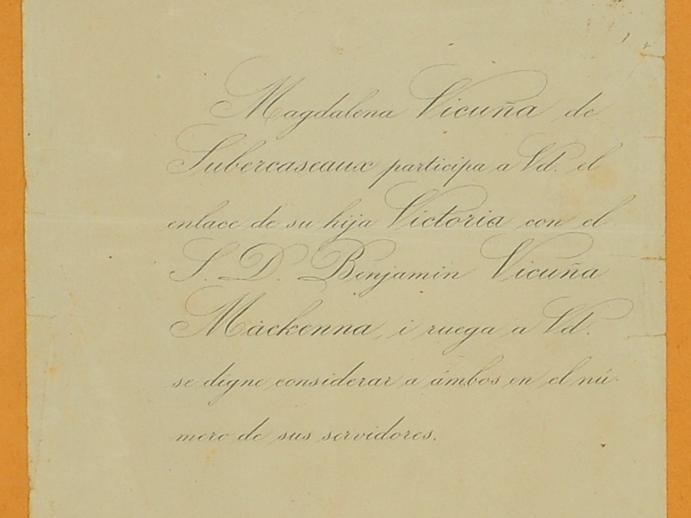 Magdalena Vicuña de
Subercaseaux participa a Vd. el
enlace de su hija Victoria con el
S. D. Benjamin Vicuña
Mackenna, i ruega a Vd.
se digne considerar a ámbos en el nú-
mero de sus servidores.